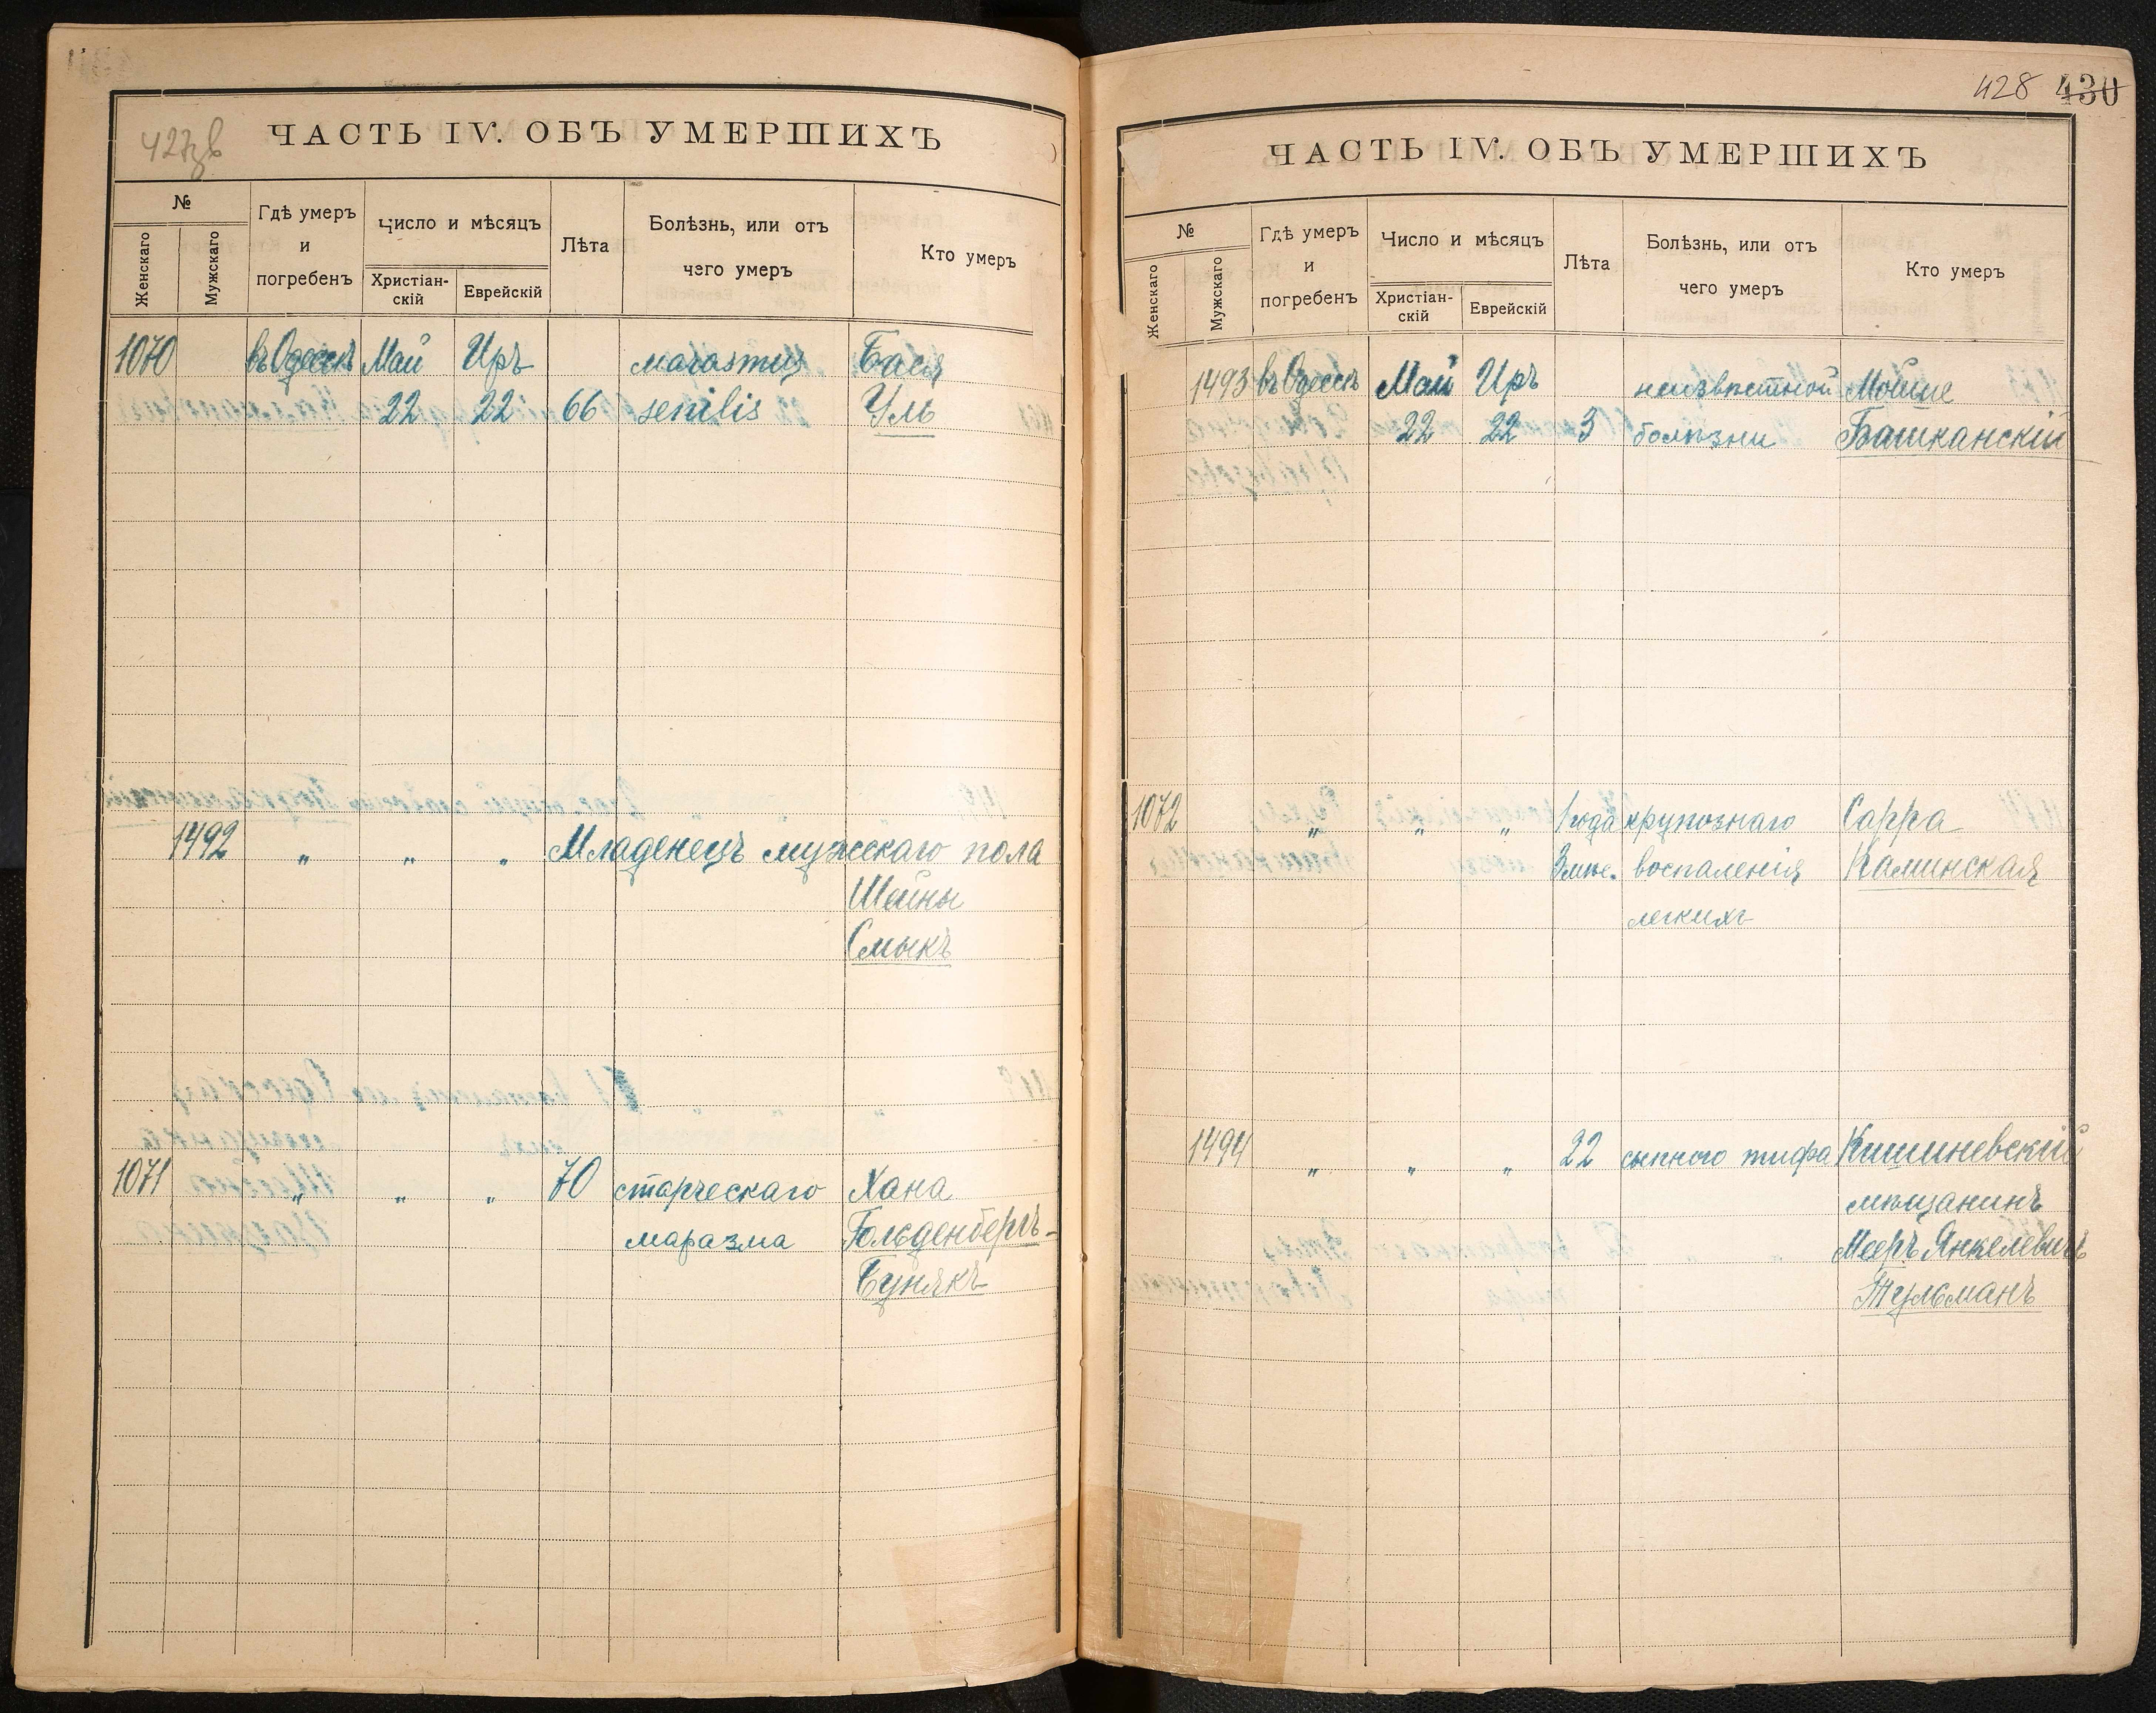 427зв
ЧАСТЬ IV. ОБЪ УМЕРШИХЪ
№
Женскаго
Мужскаго
Гдѣ умеръ
и
погребенъ
Число и мѣсяцъ
Христіан-
скій
Еврейскій
Лѣта
Болѣзнь, или отъ
чего умеръ
Кто умеръ
1070 въ Одессѣ Май Иръ marasmus Бася
22 22 66 senilis Уль
1492 " " " Младенецъ мужескаго пола
Шейны
Смыкъ
1071 " " " 70 старческаго Хана
маразма Гольденбергъ-
Бунякъ
428 430
ЧАСТЬ IV. ОБЪ УМЕРШИХЪ
№
Женскаго
Мужскаго
Гдѣ умеръ
и
погребенъ
Число и мѣсяцъ
Христіан-
скій
Еврейскій
Лѣта
Болѣзнь, или отъ
чего умеръ
Кто умеръ
1493 въ Одессѣ Май Иръ неизвѣстной Мойше
22 22 3 болѣзни Башканскій
1072 " " " 1 года крупознаго Сарра
3 мѣс. воспаленія Каминская
легкихъ
1494 " " " 22 сыпного тифа Кишиневскій
мѣщанинъ
Мееръ Янкелевичъ
Тульманъ